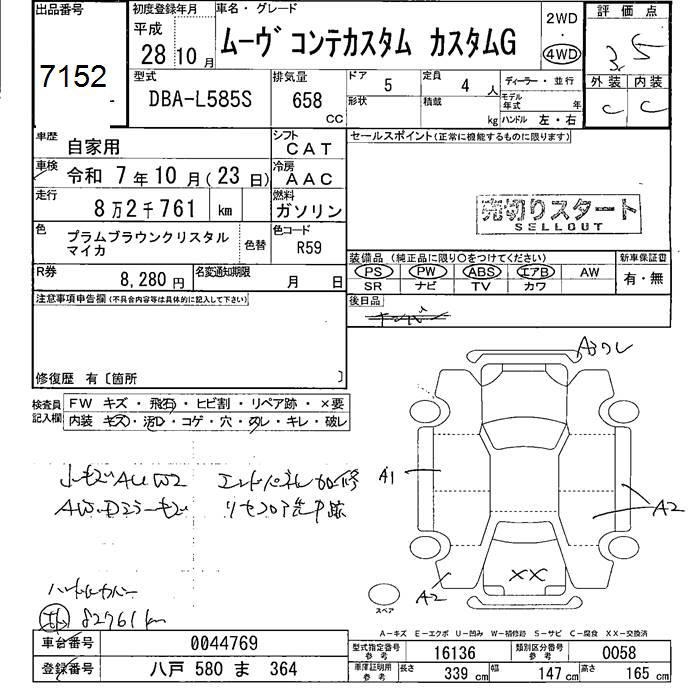 出品番号
7152
初度登録年月
平成
28 10 月
車名・グレード
ムーヴ コンテカスタム カスタムG
2WD
・
4WD
評価点
3.5
型式
DBA-L585S
排気量
658
CC
ドア 5
定員 4 人
ディーラー・並行
形状
積載 kg
モデル年式 年
ハンドル 左・右
外装 内装
C C
車歴 自家用
シフト CAT
車検 令和 7 年 10 月 (23 日)
冷房 AAC
走行 8万2千761 km
燃料 ガソリン
色 プラムブラウンクリスタル
マイカ
色替
色コード
R59
R券 8,280 円
名変通知期限 月 日
セールスポイント(正常に機能するものに限ります)
売切りスタート
SELLOUT
装備品(純正品に限り○をつけてください)
PS PW ABS エアB AW
SR ナビ TV カワ
新車保証書
有・無
注意事項申告欄(不具合内容等は具体的に記入して下さい)
後日品
修復歴 有〔箇所 〕
検査員
記入欄
FW キズ・飛石・ヒビ割・リペア跡・×要
内装・キズ・汚D・コゲ・穴・スレ・キレ・破レ
A1
A2
A2
XX
82761km
スペア
A-キズ E-エクボ U-凹み W-補修跡 S-サビ C-腐食 XX-交換済
車台番号 0044769
登録番号 八戸 580 ま 364
型式指定番号
参考
16136
類別区分番号
参考
0058
車庫証明用
参考
長さ 339 cm
幅 147 cm
高さ 165 cm